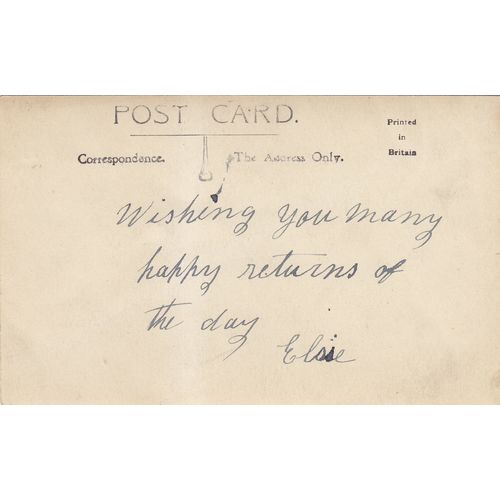 POST CARD.
Printed
in
Britain
Correspondence.
The Address Only.
Wishing you many
happy returns of
the day
Elsie